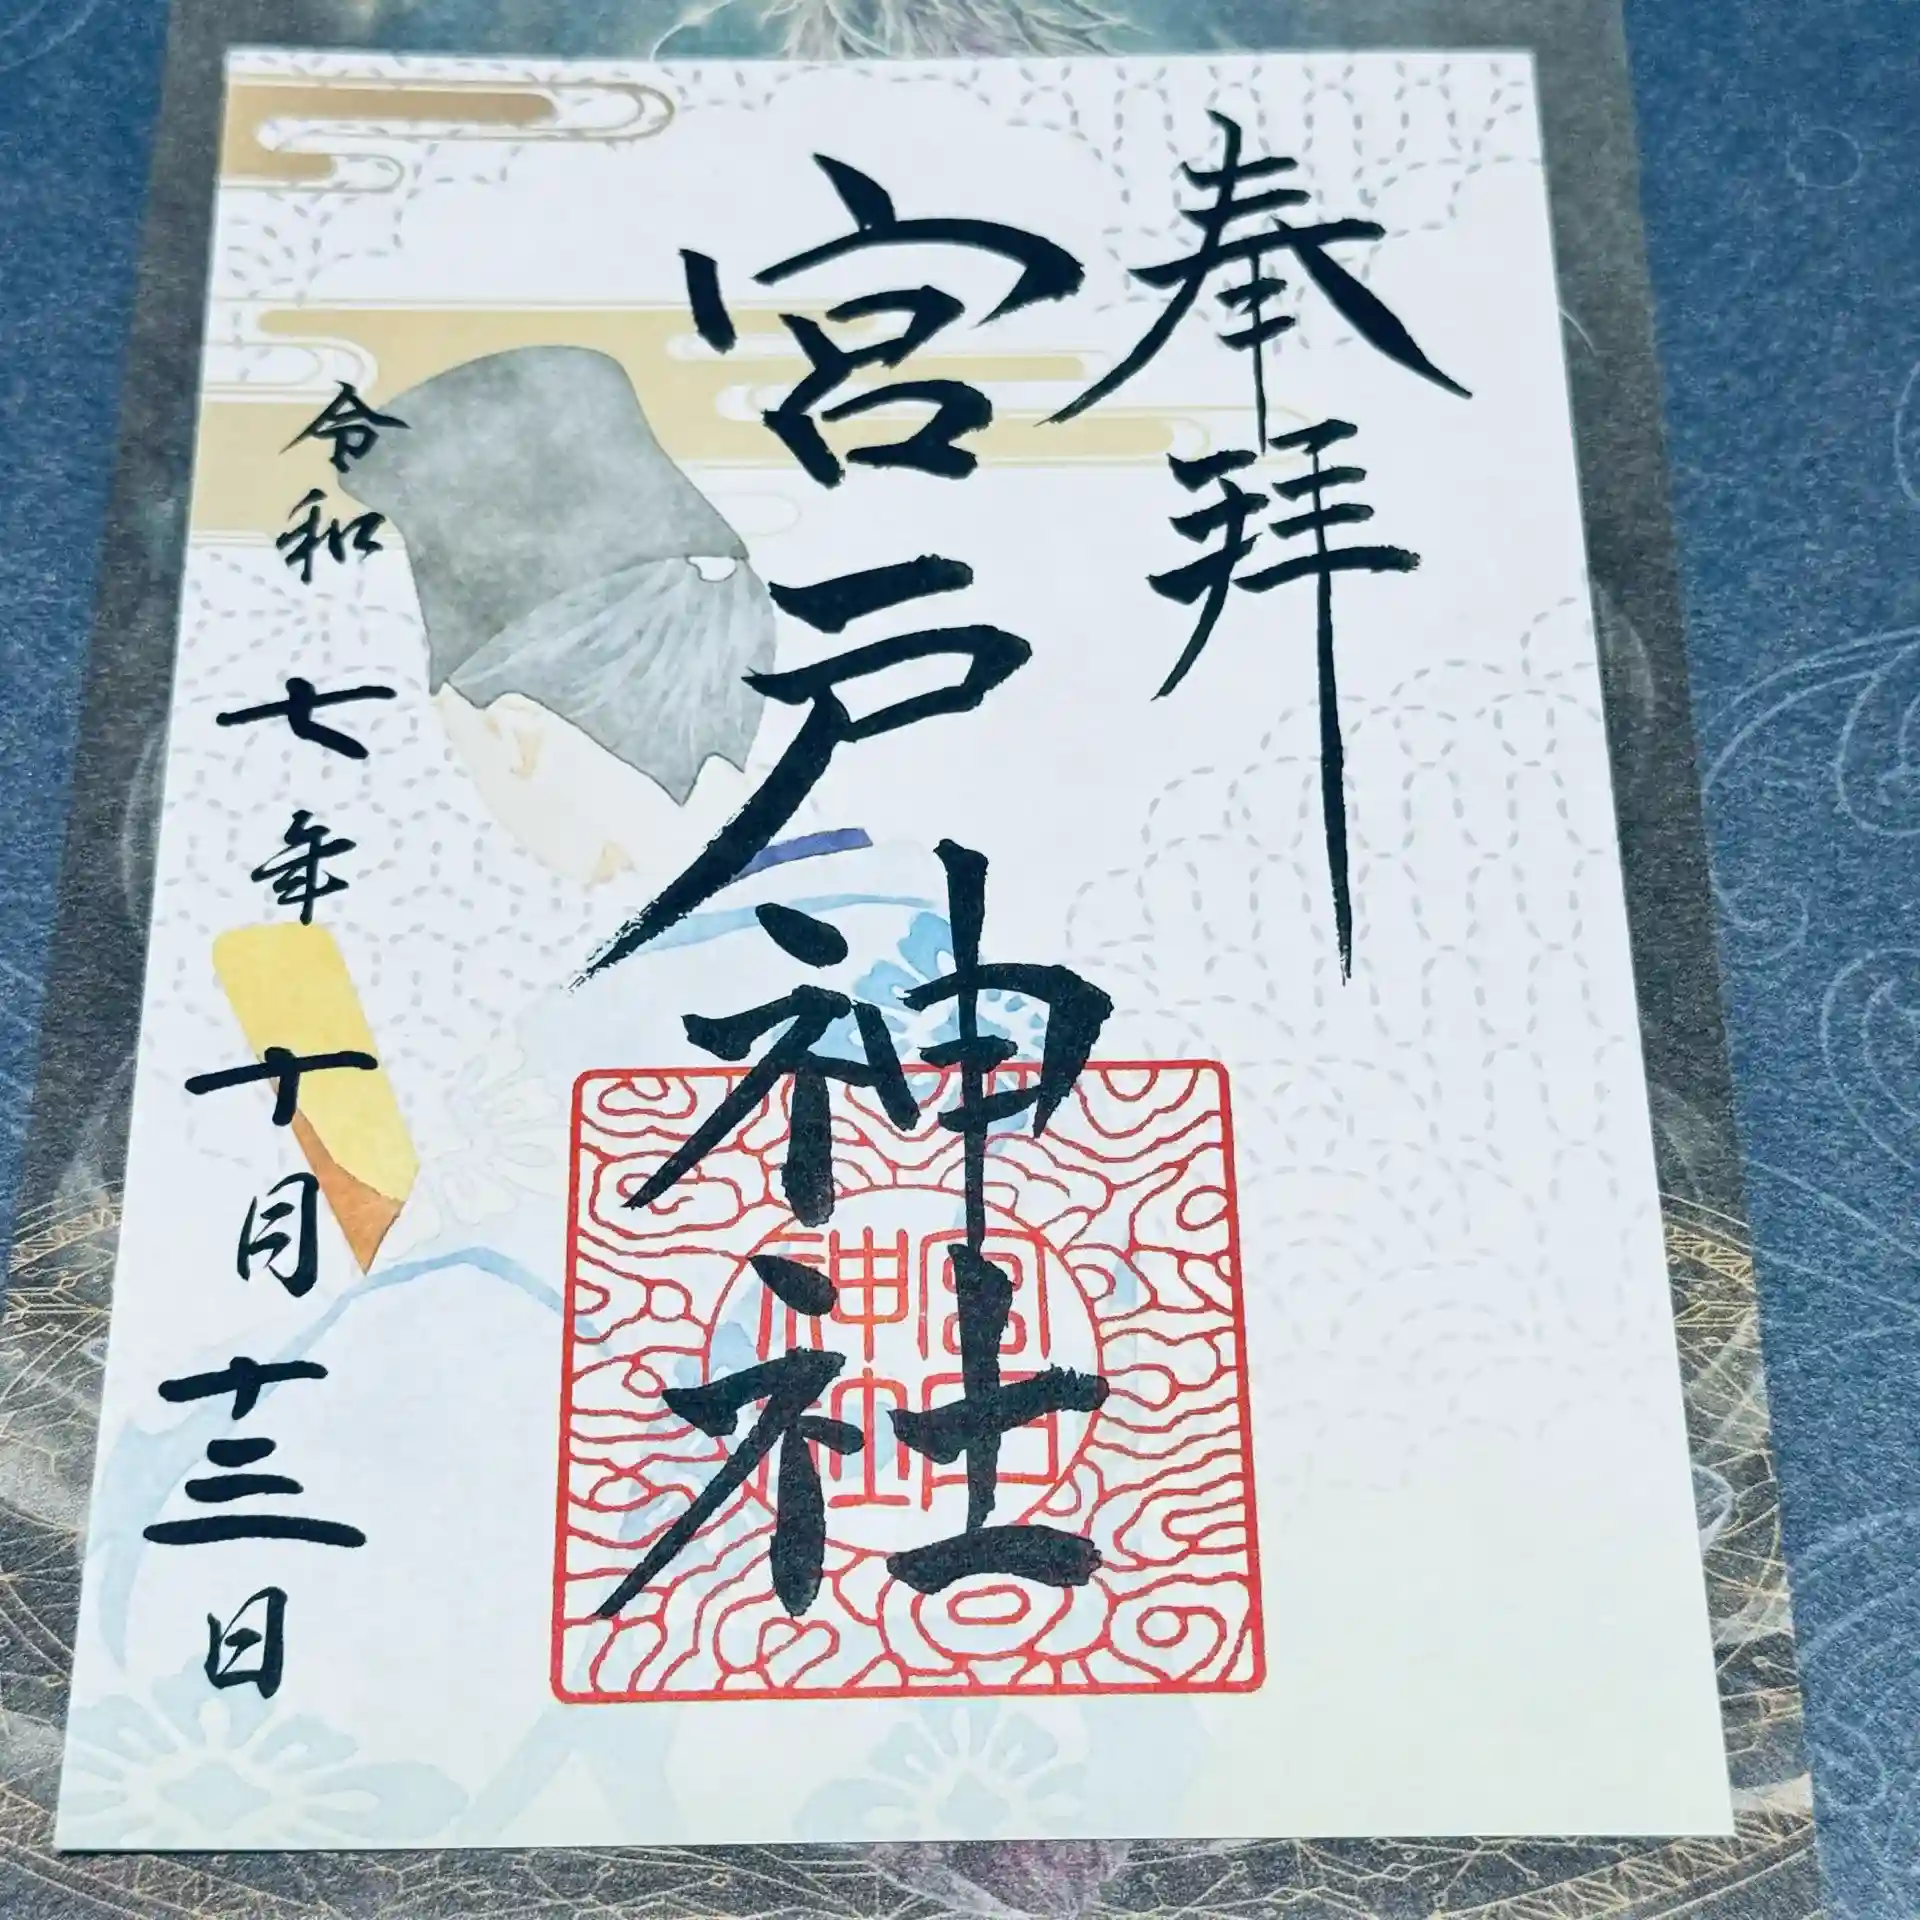 奉拝
宮戸神社
宮戸
神社
令和七年十月十三日